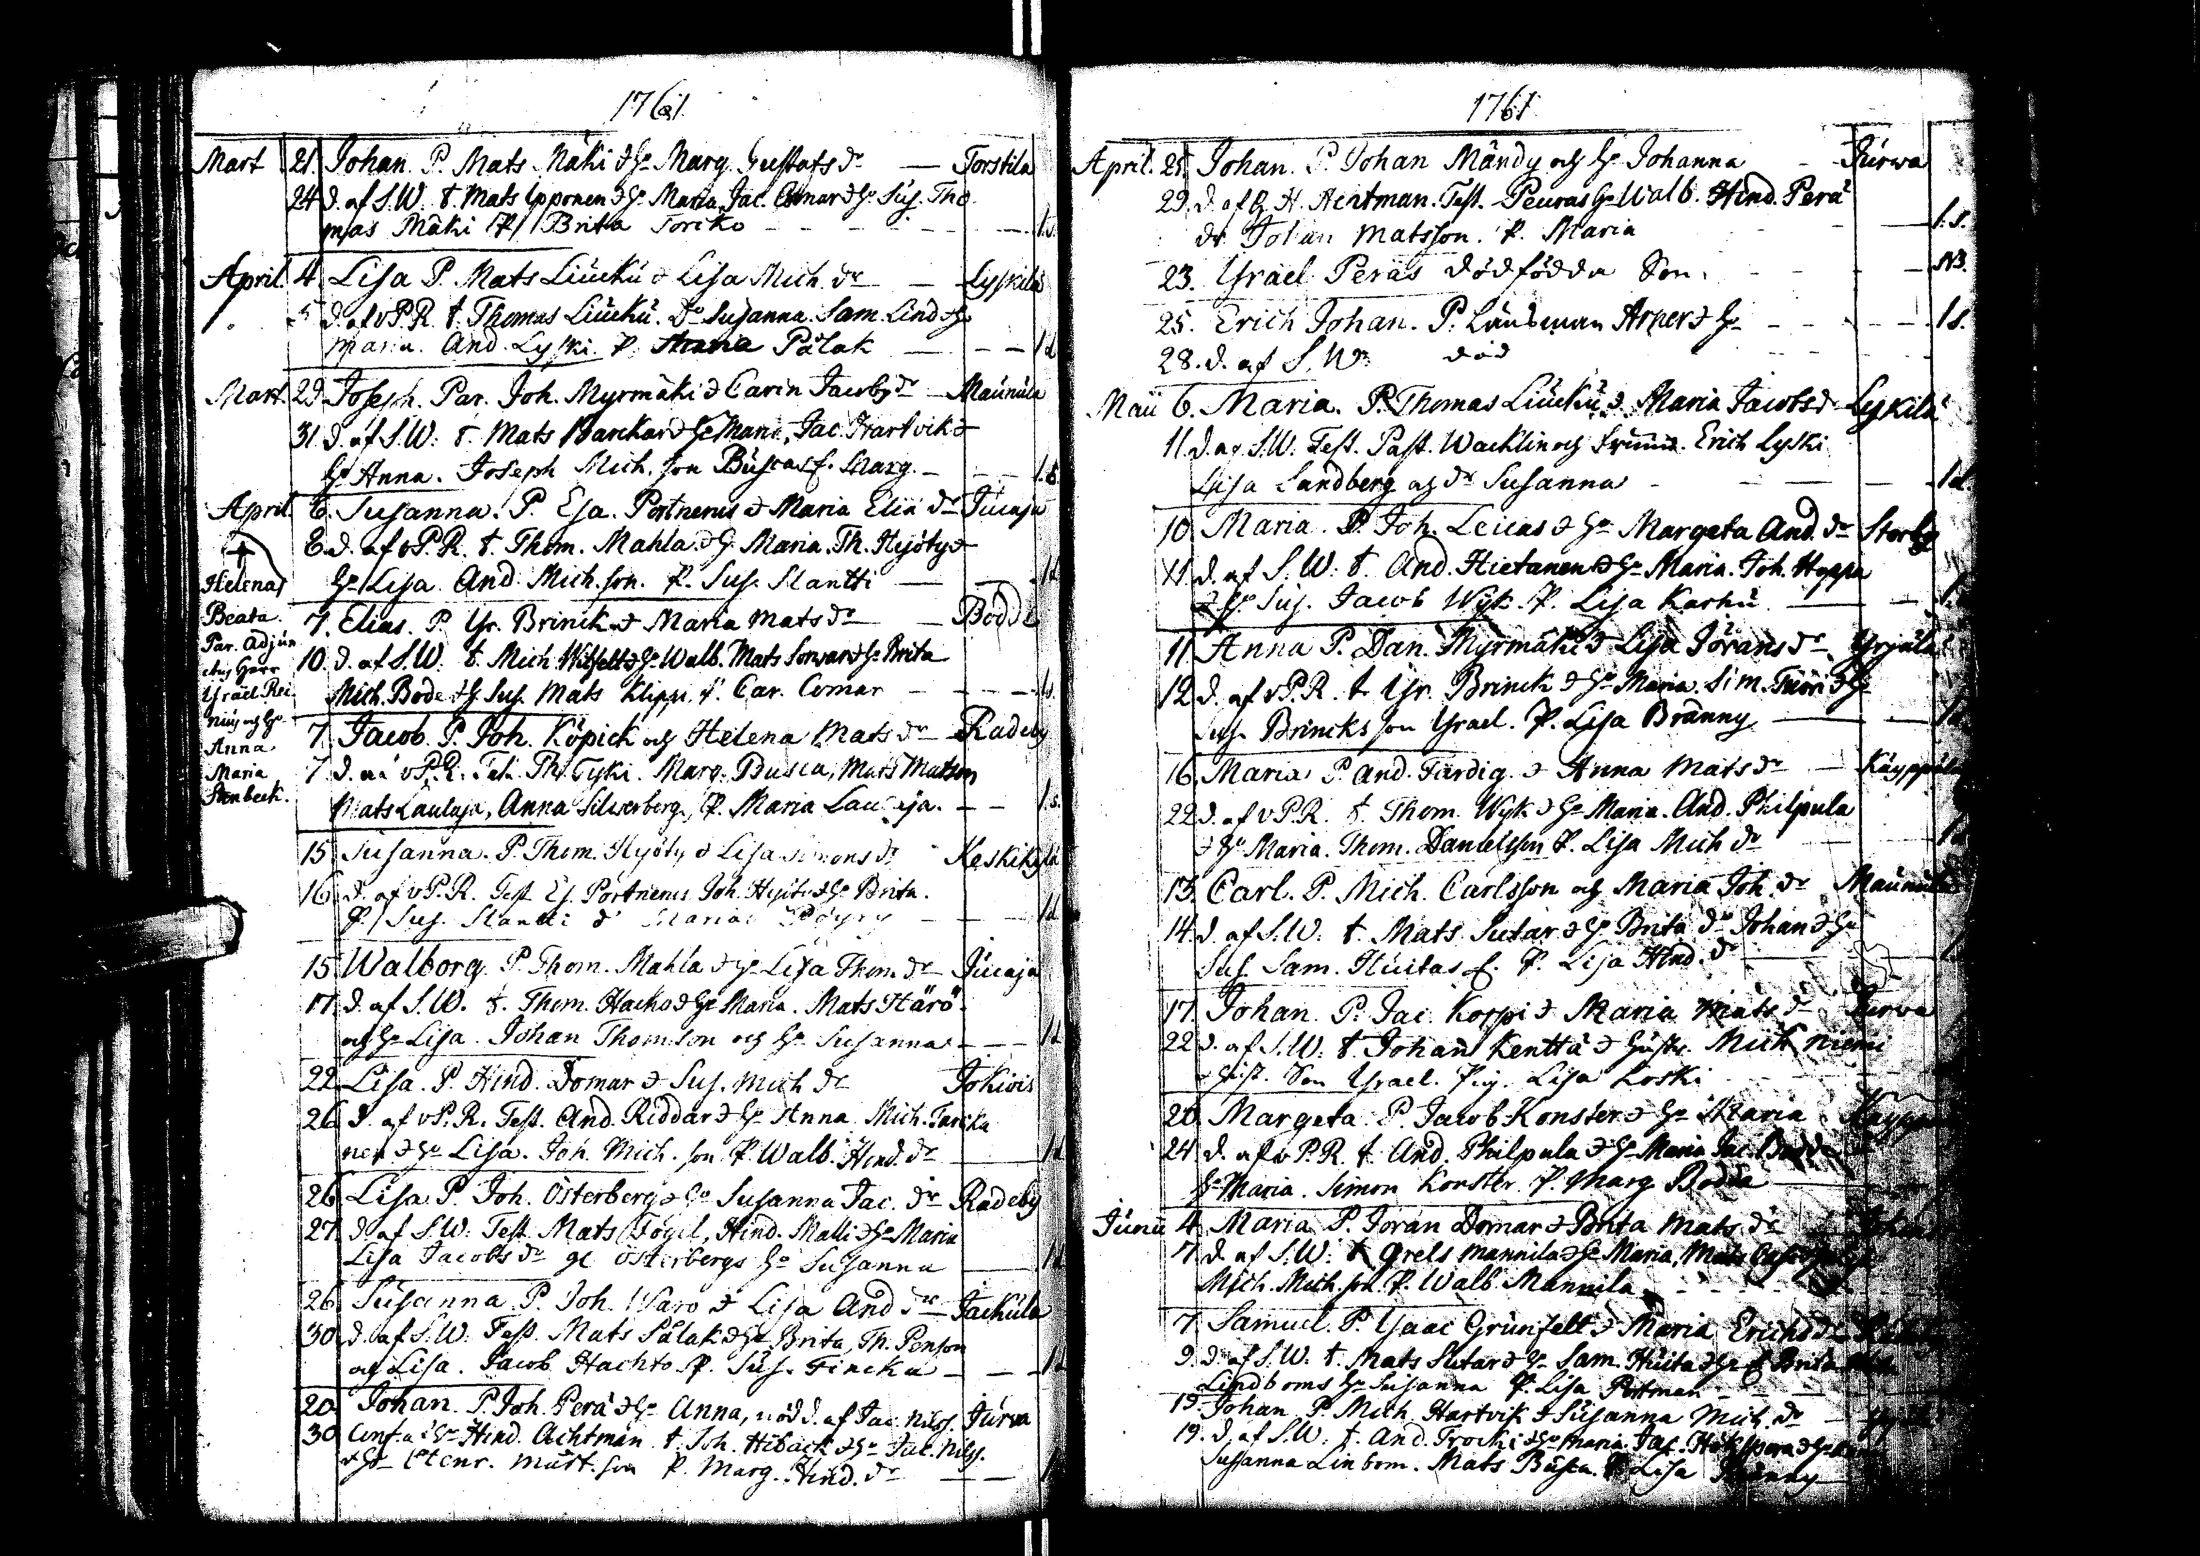 1761
Mart 21. Johan. P. Mats Mäki & Ho Marg. Gustafs dr — Torstila
24 d. af S.W. t. Mats Ipponen & Ho Maria Jac. Comar & Ho Sus. Tho
mas Mäki P/ Brita Torcko — 1 s.
April 4 Lisa P. Mats Liücku & Lisa Mich. dr — Lyskilä
5 d. af vP.R. t. Thomas Liücku. Dr Susanna. Sam. Lind & Ho
Maria. And. Lyski P. Maria Pålak — 1 d
Mart. 29 Joseph. Par. Joh. Myrmäki & Carin Jacobs dr — Maunula
31 d. af S.W. t. Mats Barckar & Ho Maria, Jac. Hartvik &
Ho Anna. Joseph Mich. son Buscas f. Marg. — 1. s.
April 6. Susanna. P. Esa. Portnenus & Maria Eliæ dr — Jucaja
8. d. af vP.R. t. Thom. Mahla & H. Maria. Th. Hyöty &
Ho Lisa. And. Mich. son. P. Sus. Slantti — 1 d
Helena
Beata.
Par. Adjun
ctus Herr
Ysrael Rei
nius och Ho
Anna
Maria
Stenbeck.
7. Elias. P. Ysr. Brinck & Maria Mats dr — Bodde
10. d. af S.W. t. Mich & Ho Walb. Mats Sorvar & Ho Brita
Mich. Bode & H Sus. Mats Klippi. P. Car. Comar — 1 s.
7. Jacob. P. Joh. Köpick och Helena Mats dr — Radeby
7 d. vP.R. Test. Th. Tyski. Marg. Busca, Mats Matsson
Mats Laulaja, Anna Silwerberg, P. Maria — 1. s.
15 Susanna. P. Thom. Hyöty & Lisa Simons dr Keskikylä
16 d. af vP.R. Test. Es. Portnenus Joh. Hyöty & Ho Brita.
P./ Sus. Slantti & Maria — 1 d
15 Walborg. P. Thom. Mahla & Ho Lisa Thom. dr — Jucaja
17. d. af S.W. t. Thom. Hacko & Ho Maria. Mats Härö
och Ho Lisa. Johan Thomson och Ho Susanna — 1 d
22. Lisa. P. Hind. Domar & Sus. Mich dr Jokiois
26 d. af vP.R. Test. And. Riddar & Ho Anna. Mich. Tarcka
nen & Ho Lisa. Joh. Mich. son P. Walb. Hind. dr — 1 d
26 Lisa P. Joh. Österberg & Ho Susanna Jac. dr — Radeby
27. d. af S.W. Test. Mats Fogel, Hind. Malli & Ho Maria
Lisa Jacobs dr Österbergs Ho Susanna — 1 d
26. Susanna. P. Joh. Waro & Lisa And. dr — Jackula
30 d. af S.W. Test. Mats Pålak & Ho Brita, Th. Penson
och Lisa. Jacob Hachto. P. Sus. Fincku — 1 d
20. Johan. P. Joh. Perä & Ho Anna, nöd d. af Jac. Nilss. Jurva
30. Hind. Achtman. t. Joh. Hiback & Ho Jac. Nilss.
& Ho Mårt. son P. Marg. Hind. dr —
1761
April. 25. Johan. P. Johan Mändy och Ho Johanna — Jurwa
29. d. af Hr H. Achtman. Test. Peuras Ho Walb. Hind. Perä
dr Johan Matsson. P. Maria — 1. s.
23. Ysrael Peräs dödfödda Son — NB.
25. Erich Johan. P. Länsman Arper & Ho — 1 s.
28. d. af S.W. död
Maii 6. Maria. P. Thomas Liücku & Maria Jacobs dr — Lyskilä
11. d. af S.W. Test. Past. Wacklin och fruun. Erich Lyski
Lisa Landberg och dr Susanna — 1 d
10. Maria. P. Joh. Leicas & Ho Margeta And. dr Storby
11 d. af S.W. t. And. Hietanen & Ho Maria. Joh. Hoppa
& Ho Sus. Jacob Wyk. P. Lisa Karhu —
11 Anna P. Dan. Myrmäki & Lisa Jörans dr Yrjälä
12 d. af vP.R. t. Ysr. Brinck & Ho Maria. Sim. Tuori & Ho
Sus. Brincks son Ysrael. P. Lisa Bränny — 1 d
16. Maria P. And. Färdig. & Anna Mats dr — Käyppälä
22 d. af vP.R. t. Thom. Wyk & Ho Maria. And. Philpula
& Ho Maria. Thom. Danielsson P. Lisa Mich dr — 1 d
13. Carl. P. Mich. Carlsson och Maria Joh. dr Maunula
14. d. af S.W. t. Mats Sutar & Ho Brita dr Johan & Ho
Sus. Sam. Huitas f. P. Lisa Hind. dr —
17. Johan. P. Jac. Koppi & Maria Mats dr Jurwa
22 d. af S.W. t. Johan Kenttä & Hustr. Mich. Niemi
Son Ysrael. Pig. Lisa Koski
20. Margeta P. Jacob Konster & Ho Maria
24 d. af vP.R. t. And. Philpula & Ho Maria Jac. Bodde
Ho Maria. Simon Konster. P. Marg Bodda
Junii 4 Maria P. Joran Domar & Brita Mats dr
7 d. af S.W. t. Grels Mannila & Ho Maria, Mats
Mich. Mich. son. P. Walb Mannila
7. Samuel. P. Ysaac Grünfelt & Maria Erichs dr
9. d. af S.W. t. Mats Sutar & Ho Sam. Huita & Ho Brita
Lindboms Ho Susanna P. Lisa Portman
15. Johan P. Mich. Hartvik & Susanna Mich. dr
19. d. af S.W. t. And. Trocki & Ho Maria. Jac.
Susanna Linbom. Mats Busca. P. Lisa